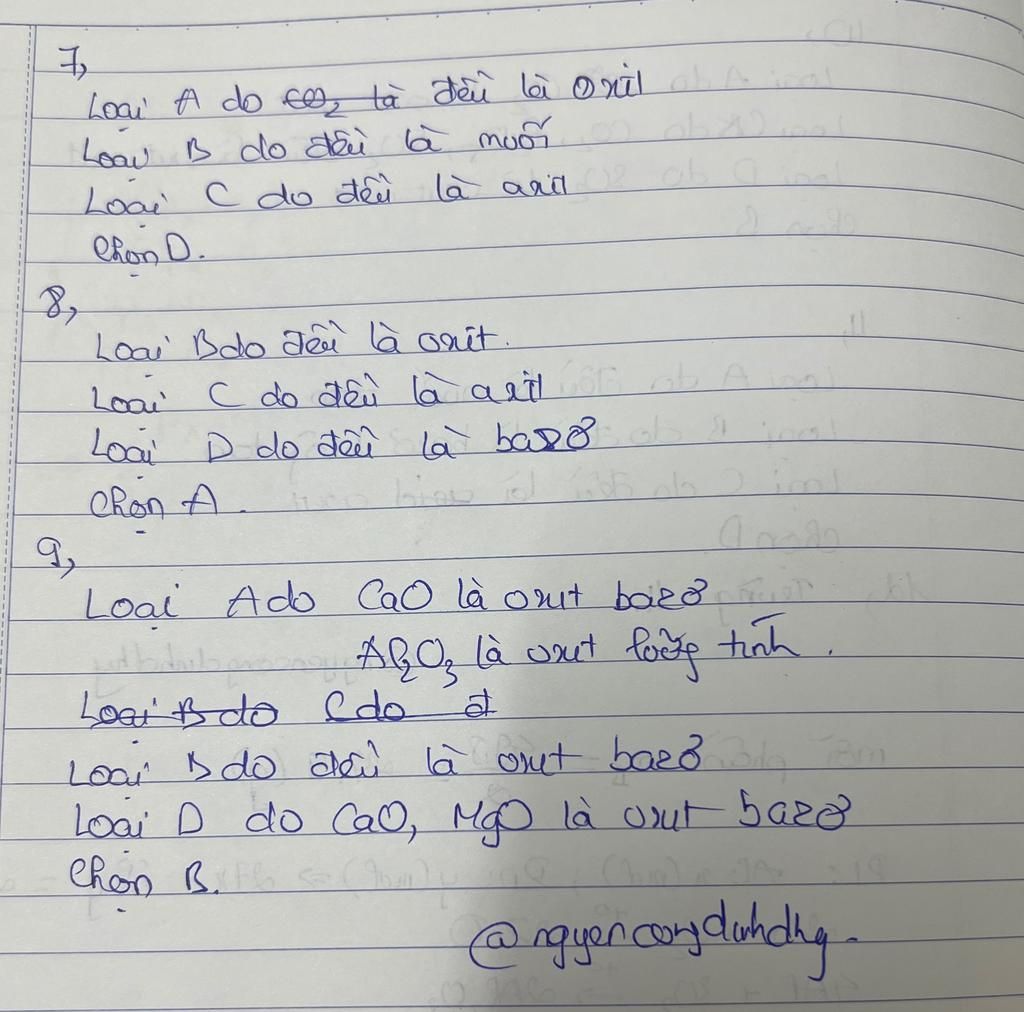 7,
Loại A do CO₂ là đều là Oxit
Loại B do đều là muối
Loại C do đều là axit
Chọn D.
8,
Loại B do đều là oxit.
Loại C do đều là axit
Loại D do đều là bazơ
Chọn A.
9,
Loại A do CaO là oxit bazơ
Al₂O₃ là oxit lưỡng tính.
Loại B do C do đ
Loại B do đều là oxit bazơ
Loại D do CaO, MgO là oxit bazơ
Chọn B.